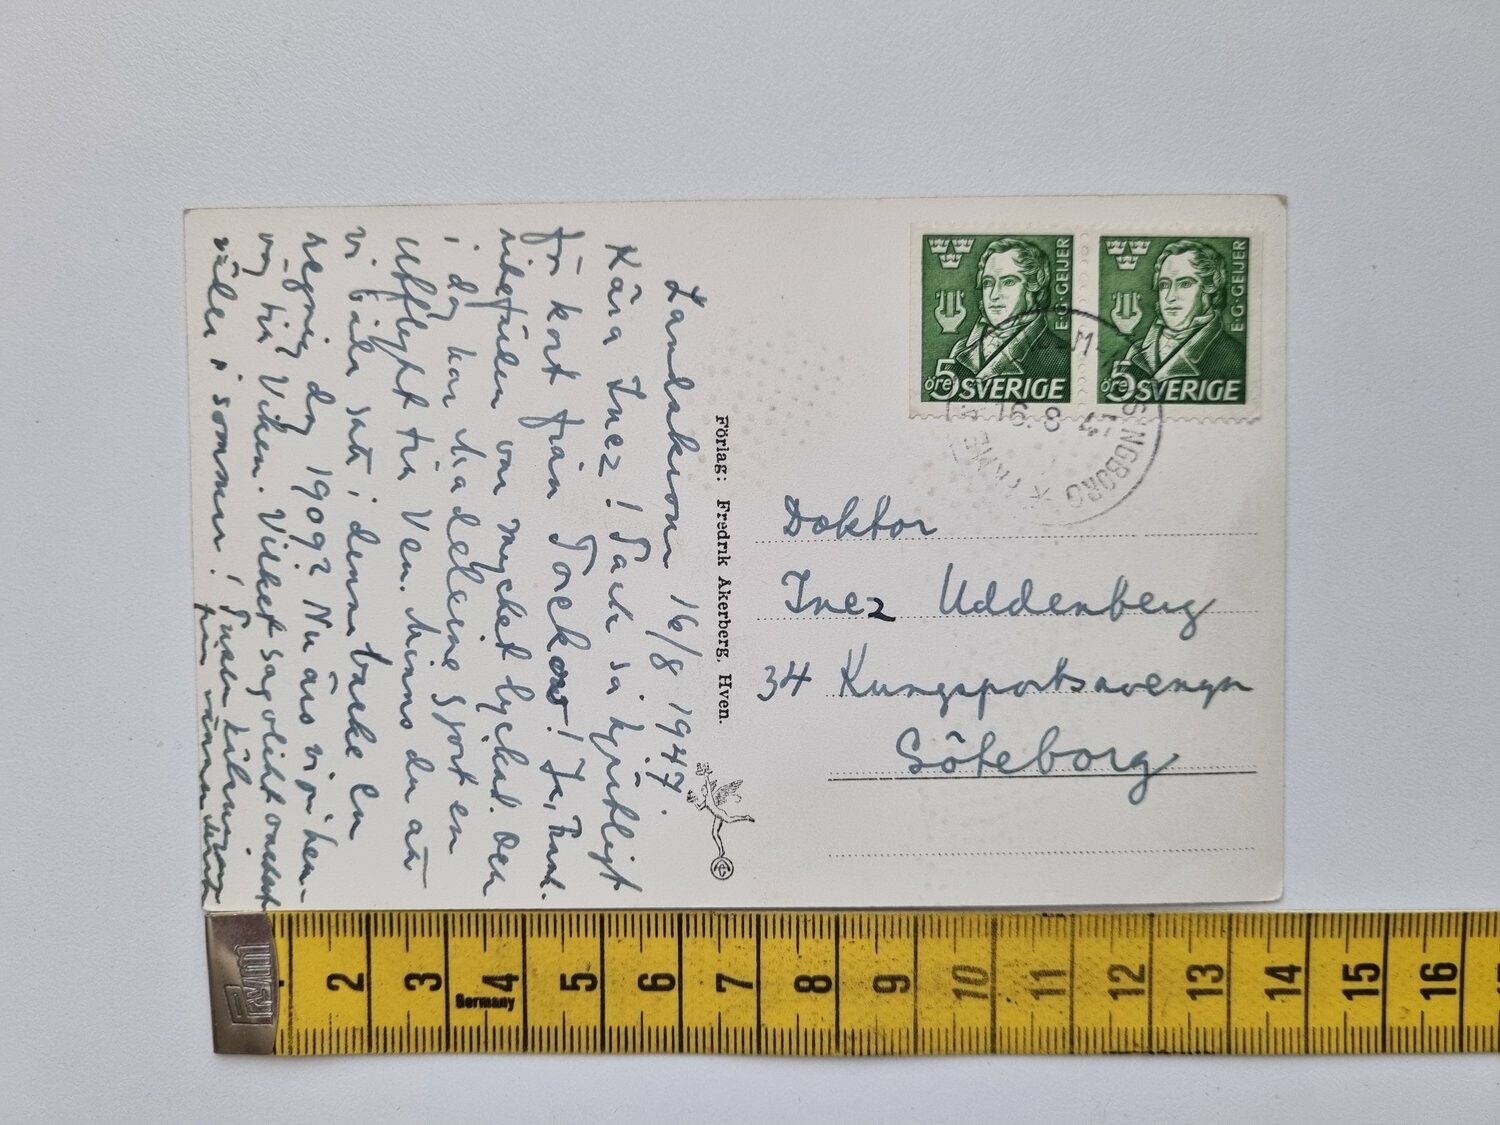 Landskrona 16/8 1947.
Kära Inez! Tack så hjärtligt
för kort från Torekov! Ja,
var mycket lyckad. Och
i dag har
utflykt till Ven. Minns du att
vi satt i denna backe en
regnig dag 1909? Nu äro vi
väg till Viken. Vilket sagolikt
väder i sommar! Tusen
Förlag: Fredrik Åkerberg, Hven.
E·G·GEIJER
5 öre SVERIGE
E·G·GEIJER
5 öre SVERIGE
16. 8. 47
Doktor
Inez Uddenberg
34 Kungsportsavenyn
Göteborg
Germany
2 3 4 5 6 7 8 9 10 11 12 13 14 15 16